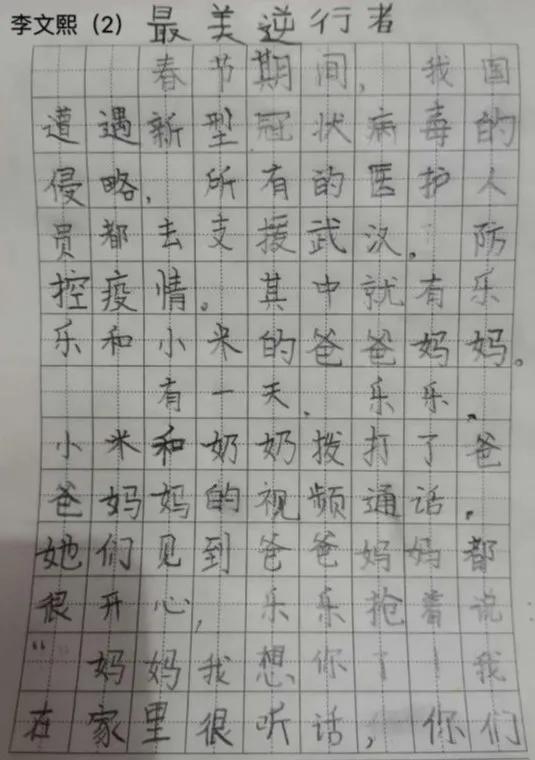 李文熙（2）最美逆行者
春节期间，我国
遭遇新型冠状病毒的
侵略，所有的医护人
员都去支援武汉。防
控疫情。其中就有乐
乐和小米的爸爸妈妈。
有一天、乐乐、
小米和奶奶拨打了爸
爸妈妈的视频通话。
她们见到爸爸妈妈都
很开心，乐乐抢着说
“妈妈我想你了！我
在家里很听话，你们